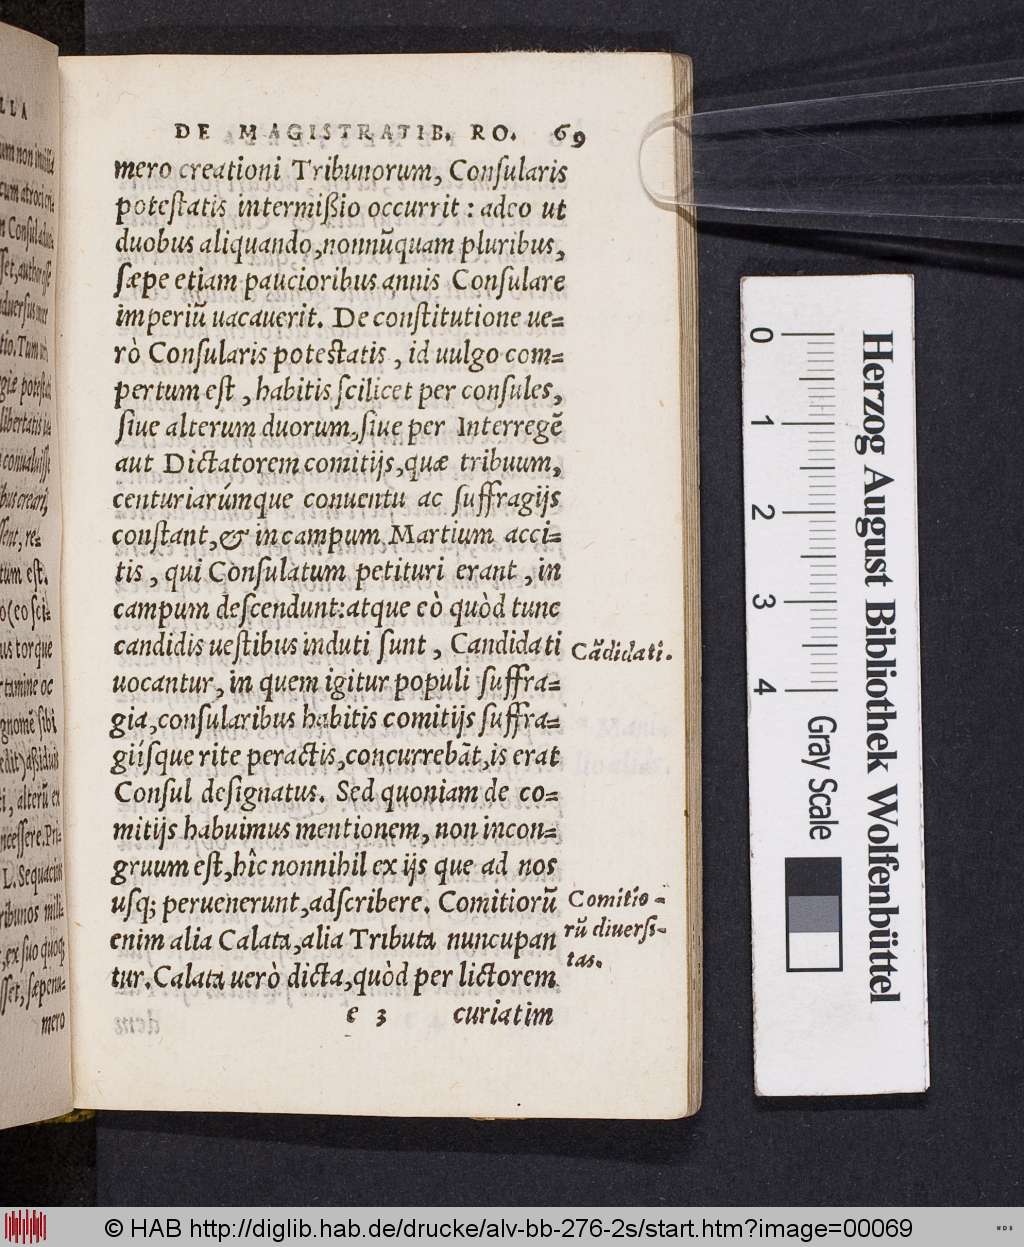 DE MAGISTRATIB. RO. 69
mero creationi Tribunorum, Conſularis
poteſtatis intermißio occurrit: adeo ut
duobus aliquando, nonnũquam pluribus,
ſæpe etiam paucioribus annis Conſulare
imperiũ uacauerit. De conſtitutione ue=
rò Conſularis poteſtatis, id uulgo com=
pertum eſt, habitis ſcilicet per conſules,
ſiue alterum duorum, ſiue per Interregẽ
aut Dictatorem comitijs, quæ tribuum,
centuriarúmque conuentu ac ſuffragijs
conſtant, & in campum Martium acci=
tis, qui Conſulatum petituri erant, in
campum deſcendunt: atque eò quòd tunc
candidis ueſtibus induti ſunt, Candidati
Cãdidati.
uocantur, in quem igitur populi ſuffra=
gia, conſularibus habitis comitijs ſuffra=
giiſque rite peractis, concurrebãt, is erat
Conſul deſignatus. Sed quoniam de co=
mitijs habuimus mentionem, non incon=
gruum eſt, hîc nonnihil ex ijs que ad nos
uſq; peruenerunt, adſcribere. Comitiorũ
Comitio=
enim alia Calata, alia Tributa nuncupan
rũ diuerſi=
tur. Calata uerò dicta, quòd per lictorem
tas.
e 3 curiatim
LLA
mero
0 1 2 3 4
Gray Scale
Herzog August Bibliothek Wolfenbüttel
© HAB http://diglib.hab.de/drucke/alv-bb-276-2s/start.htm?image=00069